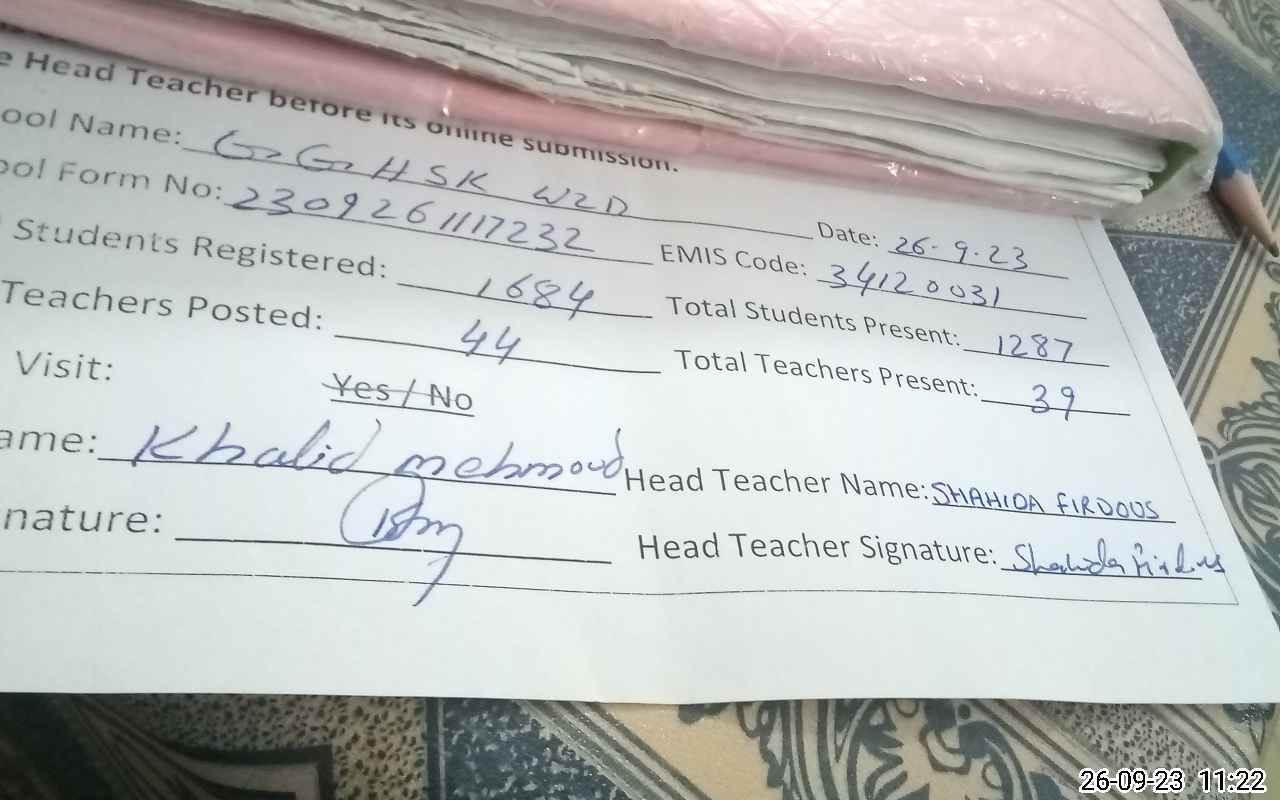 e Head Teacher before its online submission.
ool Name: GGHSK WZD Date: 26-9-23
ool Form No: 2309261117232 EMIS Code: 34120031
Students Registered: 1684 Total Students Present: 1287
Teachers Posted: 44 Total Teachers Present: 39
Visit: Yes / No
ame: Khalid mehmood Head Teacher Name: SHAHIDA FIRDOUS
nature: Head Teacher Signature: Shahida Firdous
26-09-23 11:22